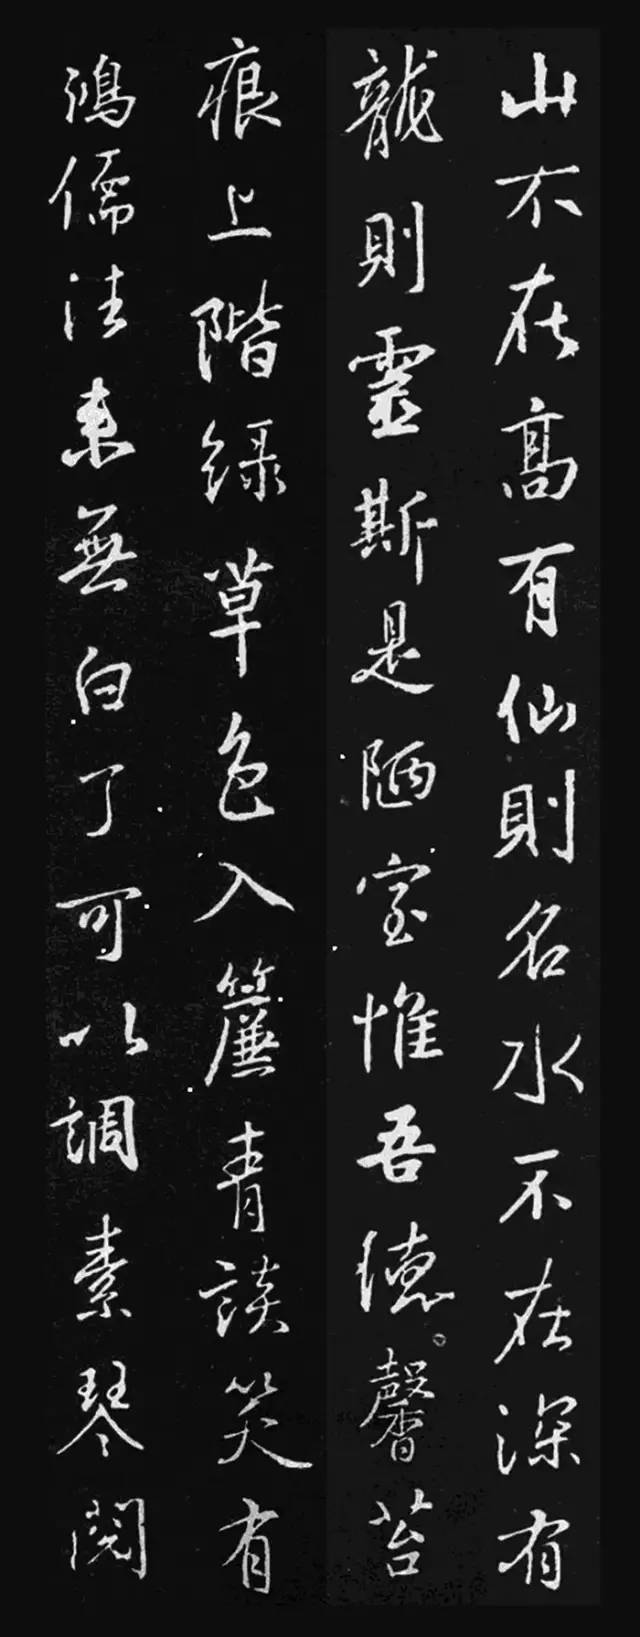 山不在高有仙則名水不在深有
龍則靈斯是陋室惟吾德馨苔
痕上階緑草色入簾青談笑有
鴻儒往来無白丁可以調素琴閱